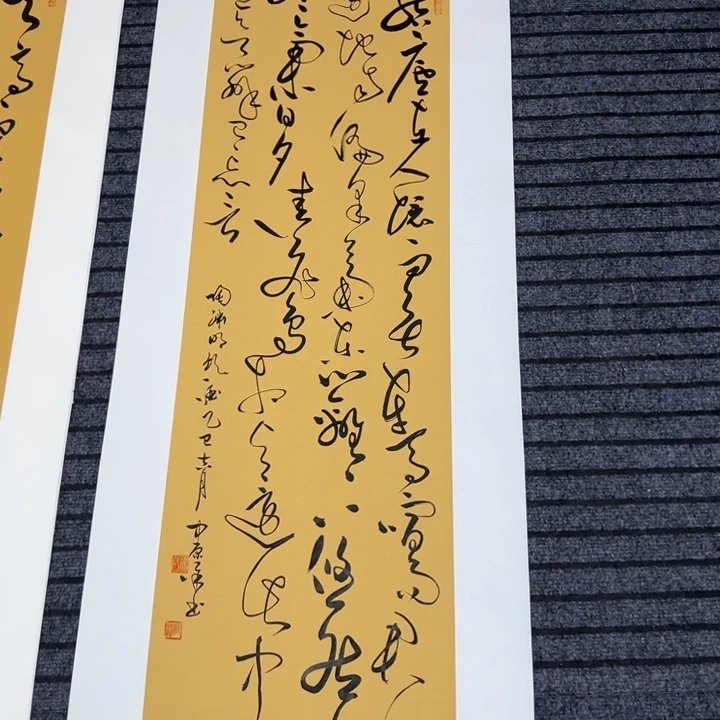 結廬在人境而無車馬喧問君
遠地自偏采菊東籬下悠然
山氣日夕佳飛鳥相與還此中
意欲辨已忘言
陶淵明飲酒乙巳六月中原書